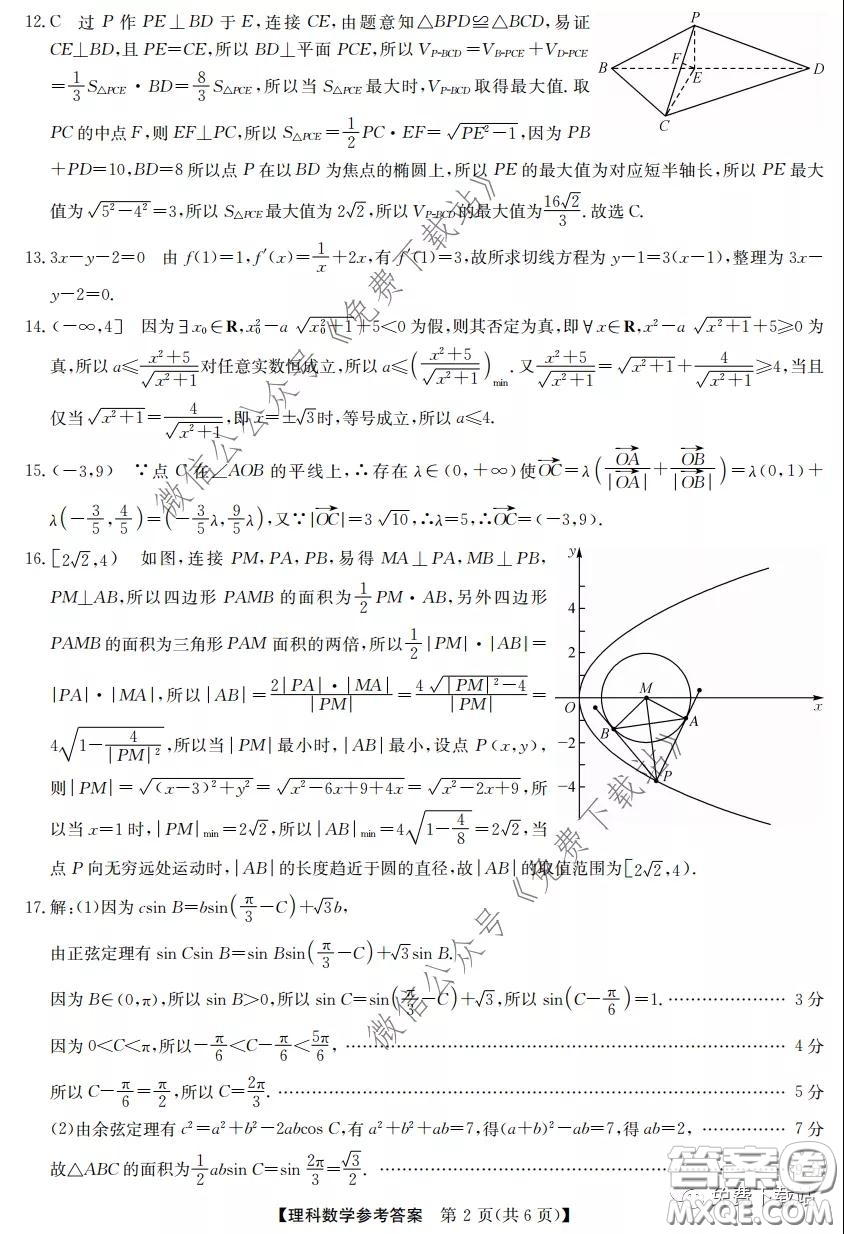 12.C 过 P 作 PE⊥BD 于 E,连接 CE,由题意知△BPD≌△BCD,易证
CE⊥BD,且 PE=CE,所以 BD⊥平面 PCE,所以 V_{P-BCD}=V_{B-PCE}+V_{D-PCE}
=\frac{1}{3}S_{△PCE}·BD=\frac{8}{3}S_{△PCE},所以当 S_{△PCE}最大时,V_{P-BCD}取得最大值.取
PC 的中点 F,则 EF⊥PC,所以 S_{△PCE}=\frac{1}{2}PC·EF=\sqrt{PE^2-1},因为 PB
+PD=10,BD=8 所以点 P 在以 BD 为焦点的椭圆上,所以 PE 的最大值为对应短半轴长,所以 PE 最大
值为\sqrt{5^2-4^2}=3,所以 S_{△PCE}最大值为 2\sqrt{2},所以 V_{P-BCD}的最大值为\frac{16\sqrt{2}}{3}.故选 C.
P
B
F
E
D
C
13.3x-y-2=0 由 f(1)=1,f′(x)=\frac{1}{x}+2x,有 f′(1)=3,故所求切线方程为 y-1=3(x-1),整理为 3x-
y-2=0.
14.(-∞,4] 因为∃x_0∈R,x_0^2-a\sqrt{x_0^2+1}+5<0 为假,则其否定为真,即∀x∈R,x^2-a\sqrt{x^2+1}+5≥0 为
真,所以 a≤\frac{x^2+5}{\sqrt{x^2+1}}对任意实数恒成立,所以 a≤(\frac{x^2+5}{\sqrt{x^2+1}})_{min}.又\frac{x^2+5}{\sqrt{x^2+1}}=\sqrt{x^2+1}+\frac{4}{\sqrt{x^2+1}}≥4,当且
仅当\sqrt{x^2+1}=\frac{4}{\sqrt{x^2+1}},即 x=±\sqrt{3}时,等号成立,所以 a≤4.
15.(-3,9) ∵点 C 在∠AOB 的平线上,∴存在 λ∈(0,+∞)使\overrightarrow{OC}=λ(\frac{\overrightarrow{OA}}{|\overrightarrow{OA}|}+\frac{\overrightarrow{OB}}{|\overrightarrow{OB}|})=λ(0,1)+
λ(-\frac{3}{5},\frac{4}{5})=(-\frac{3}{5}λ,\frac{9}{5}λ),又∵|\overrightarrow{OC}|=3\sqrt{10},∴λ=5,∴\overrightarrow{OC}=(-3,9).
16.[2\sqrt{2},4) 如图,连接 PM,PA,PB,易得 MA⊥PA,MB⊥PB,
PM⊥AB,所以四边形 PAMB 的面积为\frac{1}{2}PM·AB,另外四边形
PAMB 的面积为三角形 PAM 面积的两倍,所以\frac{1}{2}|PM|·|AB|=
|PA|·|MA|,所以|AB|=\frac{2|PA|·|MA|}{|PM|}=\frac{4\sqrt{|PM|^2-4}}{|PM|}=
4\sqrt{1-\frac{4}{|PM|^2}},所以当|PM|最小时,|AB|最小,设点 P(x,y),
则|PM|=\sqrt{(x-3)^2+y^2}=\sqrt{x^2-6x+9+4x}=\sqrt{x^2-2x+9},所
以当 x=1 时,|PM|_{min}=2\sqrt{2},所以|AB|_{min}=4\sqrt{1-\frac{4}{8}}=2\sqrt{2},当
点 P 向无穷远处运动时,|AB|的长度趋近于圆的直径,故|AB|的取值范围为[2\sqrt{2},4).
y
4
2
O
M
x
A
B
-2
P
-4
17.解:(1)因为 csin B=bsin(\frac{π}{3}-C)+\sqrt{3}b,
由正弦定理有 sin Csin B=sin Bsin(\frac{π}{3}-C)+\sqrt{3}sin B.
因为 B∈(0,π),所以 sin B>0,所以 sin C=sin(\frac{π}{3}-C)+\sqrt{3},所以 sin(C-\frac{π}{6})=1. …… 3 分
因为 0<C<π,所以-\frac{π}{6}<C-\frac{π}{6}<\frac{5π}{6}, …… 4 分
所以 C-\frac{π}{6}=\frac{π}{2},所以 C=\frac{2π}{3}. …… 5 分
(2)由余弦定理有 c^2=a^2+b^2-2abcos C,有 a^2+b^2+ab=7,得(a+b)^2-ab=7,得 ab=2, …… 7 分
故△ABC 的面积为\frac{1}{2}absin C=sin\frac{2π}{3}=\frac{\sqrt{3}}{2}. ……
【理科数学参考答案 第 2 页(共 6 页)】
微信公众号《免费下载站》
微信公众号《免费下载站》
答案圈
免费下载站
MXQE.COM